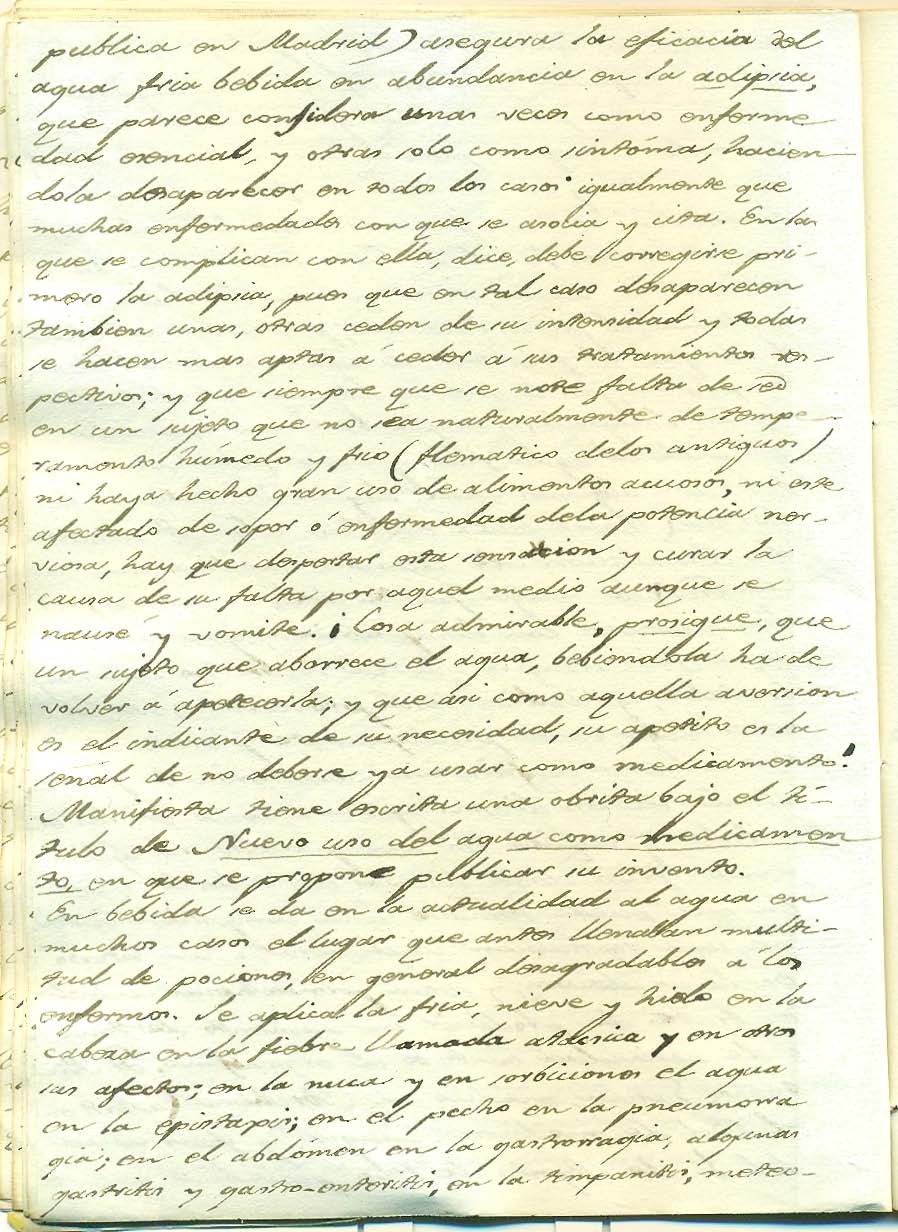 publica en Madrid) asegura la eficacia del
agua fria bebida en abundancia en la adipsia,
que parece considera unas veces como enferme
dad esencial, y otras solo como sintóma, hacien-
dola desaparecer en todos los casos igualmente que
muchas enfermedades con que se asocia y cita. En las
que se complican con ella, dice, debe corregirse pri-
mero la adipsia, pues que en tal caso desaparecen
tambien unas, otras ceden de su intensidad y todas
se hacen mas aptas á ceder á sus tratamientos res-
pectivos; y que siempre que se note falta de sed
en un sujeto que no sea naturalmente de tempe-
ramento húmedo y frio (flematico delos antiguos)
ni haya hecho gran uso de alimentos acuosos, ni este
afectado de sopor ó enfermedad dela potencia ner-
viosa, hay que despertar esta sensacion y curar la
causa de su falta por aquel medio aunque se
nausé y vomite. ¡Cosa admirable, prosigue, que
un sujeto que aborrece el agua, bebiendola ha de
volver á apetecerla; y que asi como aquella aversion
es el indicante de su necesidad, su apetito es la
señal de no deberse ya usar como medicamento!
Manifiesta tiene escrita una obrita bajo el ti-
tulo de Nuevo uso del agua como medicamen
to, en que se propone publicar su invento.
En bebida se da en la actualidad al agua en
muchos casos el lugar que antes llenaban multi-
tud de pociones, en general desagradables á los
enfermos. Se aplica la fria, nieve y hielo en la
cabeza en la fiebre llamada atáxica y en otros
sus afectos; en la nuca y en sorbiciones el agua
en la epistaxis; en el pecho en la pneumorra
gia; en el abdómen en la gastrorragia, algunas
gastritis y gastro-enteritis, en la timpanitis, meteo-